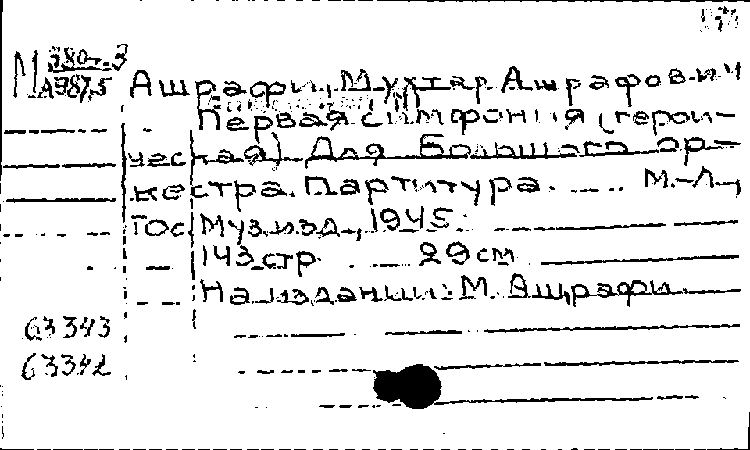 М 380-3
А987,5
Ашрафи, Мухтар Ашрафович
Первая симфония (герои-
ческая) Для большого ор-
кестра. Партитура. .... М.-Л.,
Гос. Музизд., 1945.
143 стр. 29 см
На издании: М. Ашрафи.
63343
63342